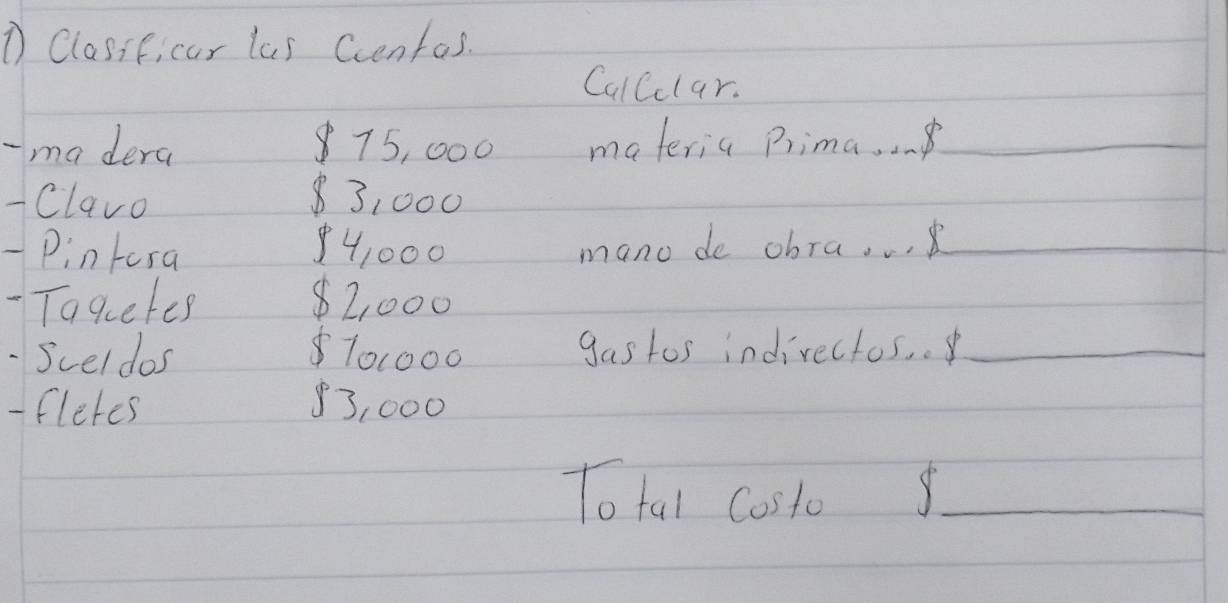 1) Clasificar las Cuentas.
Calcular.
- madera $ 15,000 materia Prima....$
- Clavo $ 3,000
- Pintura $4,000 mano de obra....$
- Taquetes $2,000
- Sueldos $10,000 gastos indirectos...$
- fletes $3,000
Total Costo $